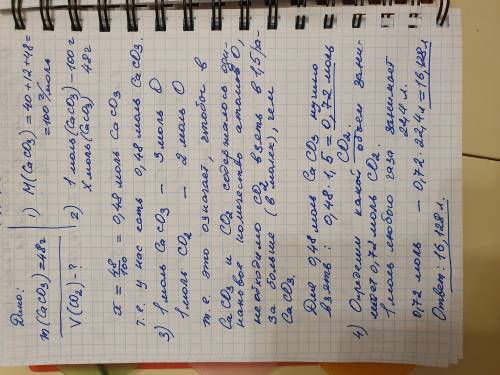 Дано:
m(CaCO3)=48г
V(CO2)-?
1) M(CaCO3)=40+12+48=
=100 г/моль
2) 1 моль(CaCO3) - 100 г
x моль(CaCO3) 48г
x = 48/100 = 0,48 моль CaCO3
т.е. у нас есть 0,48 моль CaCO3.
3) 1 моль CaCO3 - 3 моль O
1 моль CO2 - 2 моль O
т.е. это означает, чтобы в
CaCO3 и CO2 содержалось оди-
наковое количество атомов O,
необходимо CO2 взять в 1,5 ра-
за больше (в молях), чем
CaCO3.
Для 0,48 моль CaCO3 нужно
взять: 0,48·1,5=0,72 моль
CO2.
4) Определим какой объём зани-
мает 0,72 моль CO2.
1 моль любого газа занимает
22,4 л.
0,72 моль - 0,72·22,4л=16,128л
Ответ: 16,128 л.